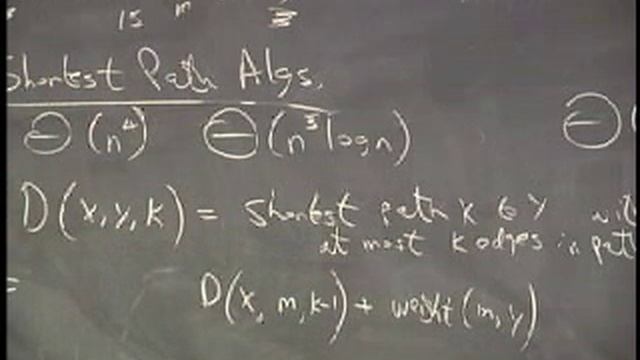 15 m
Shortest Path Algs.
Θ(n⁴) Θ(n³logn) Θ(
D(x,y,k) = Shortest path x to y wit
at most k edges in pat
= D(x, m, k-1) + weight(m, y)